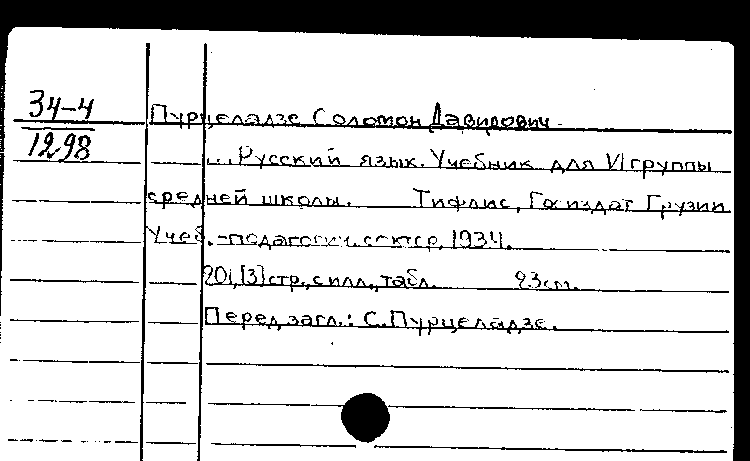 34-4
1298
Пурцеладзе Соломон Давидович.
...Русский язык. Учебник для VI группы
средней школы. Тифлис, Госиздат Грузии
Учеб.-педагогич. сектор, 1934.
201,[3]стр., с илл., табл. 23 см.
Перед загл.: С. Пурцеладзе.